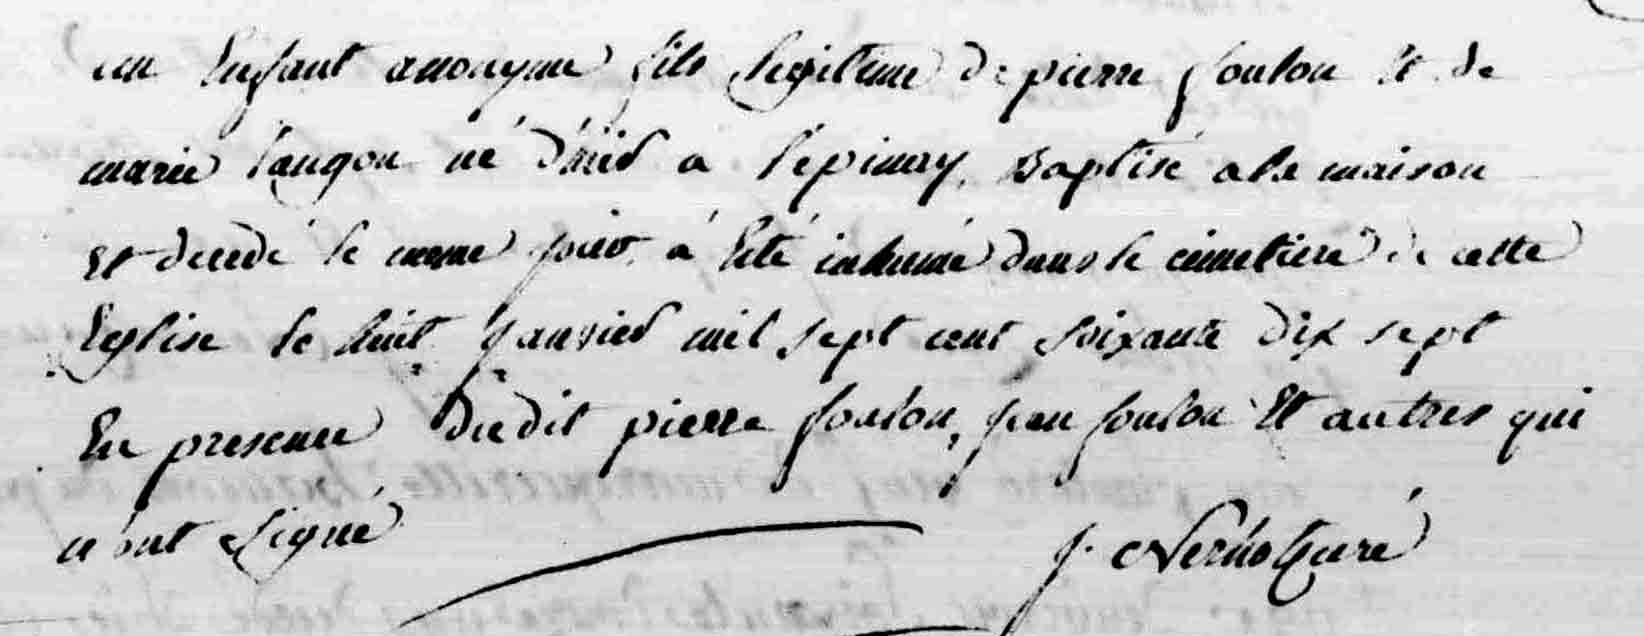 un Enfant anonyme fils legitime de pierre foulon Et de
marie langon né d'hier a l'épinay, Baptisé a la maison
Et decedé le meme jour, á Eté inhumé dans le cimetiere de cette
Eglise le huit janvier mil sept cent soixante dix sept
En presence dudit pierre foulon, jean foulon Et autres qui
n'ont signé
j. curé